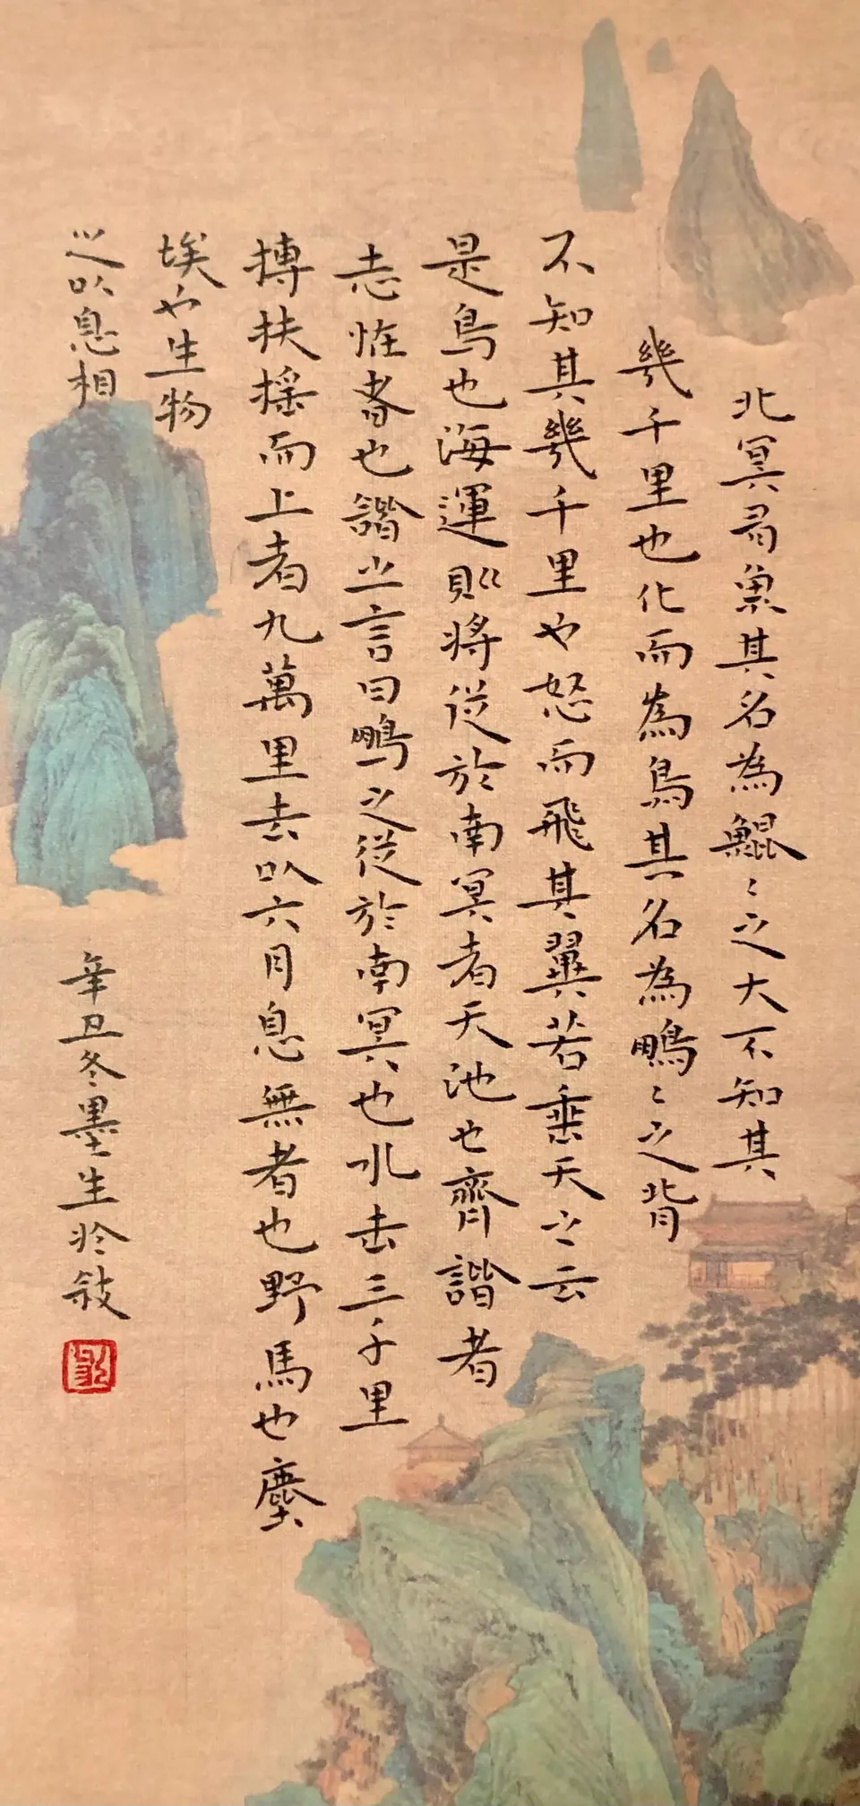 北冥有魚其名為鯤〻之大不知其
幾千里也化而為鳥其名為鵬〻之背
不知其幾千里也怒而飛其翼若垂天之云
是鳥也海運則將徙於南冥者天池也齊諧者
志恠者也諧之言曰鵬之徙於南冥也水击三千里
摶扶搖而上者九萬里去以六月息無者也野馬也塵
埃也生物
之以息相
辛丑冬墨生於敍